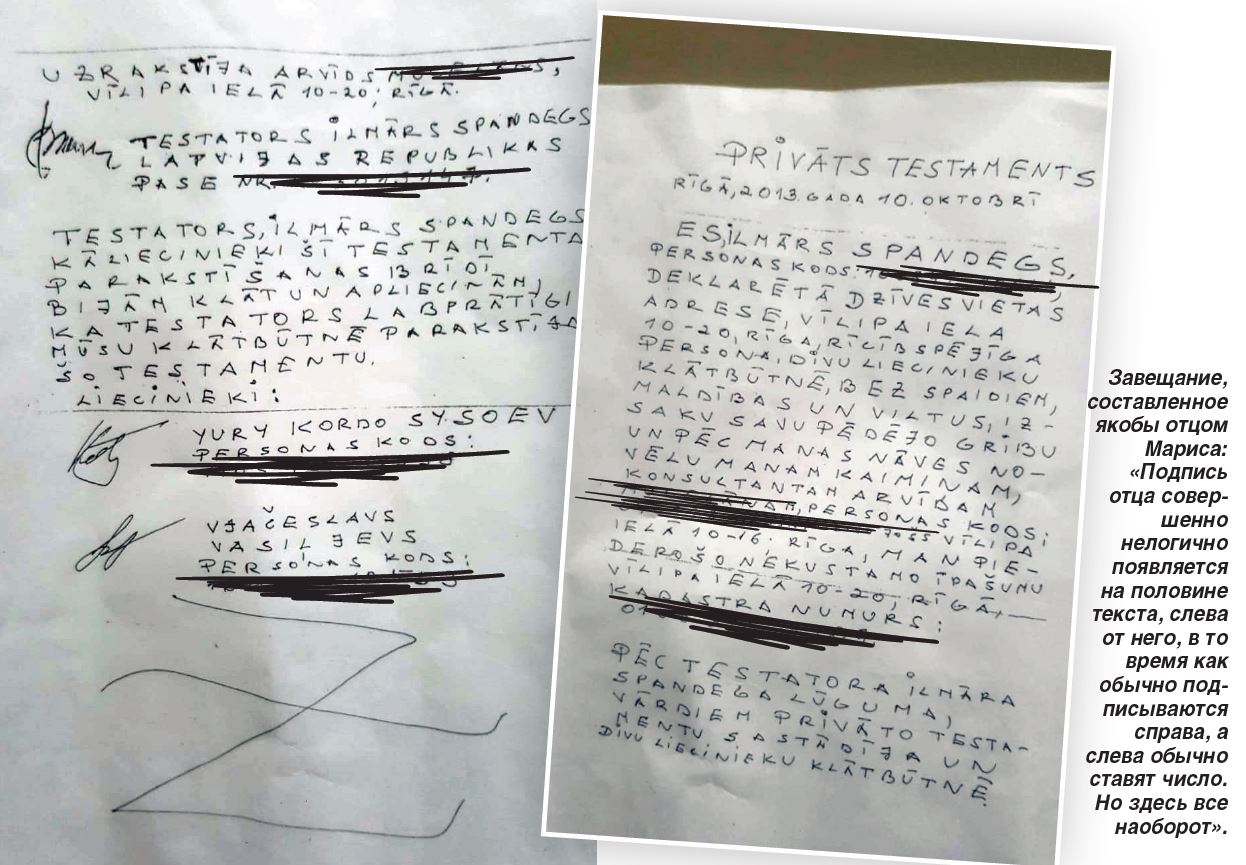 UZRAKSTĪJA ARVĪDS
VĪLIPA IELĀ 10-20, RĪGĀ.
TESTATORS ILMĀRS SPANDEGS
LATVIJAS REPUBLIKAS
PASE NR.
TESTATORS, ILMĀRS SPANDEGS
KĀ LIECINIEKI ŠĪ TESTAMENTA
PARAKSTĪŠANAS BRĪDĪ
BIJĀM KLĀT UN APLIECINĀM,
KA TESTATORS LABPRĀTĪGI
MŪSU KLĀTBŪTNĒ PARAKSTĪJA
ŠO TESTAMENTU.
LIECINIEKI:
YURY KORDO SYSOEV
PERSONAS KODS:
VJAČESLAVS
VASILJEVS
PERSONAS KODS:
PRIVĀTS TESTAMENTS
RĪGĀ, 2013. GADA 10. OKTOBRĪ
ES, ILMĀRS SPANDEGS,
PERSONAS KODS:
DEKLARĒTĀ DZĪVESVIETAS
ADRESE, VĪLIPA IELA
10-20, RĪGA, RĪCĪBSPĒJĪGA
PERSONA, DIVU LIECINIEKU
KLĀTBŪTNĒ, BEZ SPAIDIEM,
MALDĪBAS UN VILTUS, IZ-
SAKU SAVU PĒDĒJO GRIBU
UN PĒC MANAS NĀVES NO-
VĒLU MANAM KAIMIŅAM,
KONSULTANTAM ARVĪDAM
PERSONAS KODS:
VĪLIPA
IELĀ 10-16, RĪGA, MAN PIE-
DEROŠO NEKUSTAMO ĪPAŠUMU
VĪLIPA IELĀ 10-20, RĪGĀ,
KADASTRA NUMURS:
01
PĒC TESTATORA ILMĀRA
SPANDEGA LŪGUMA,
VĀRDIEM PRIVĀTO TESTA-
MENTU SASTĀDĪJA UN
DIVU LIECINIEKU KLĀTBŪTNĒ
Завещание,
составленное
якобы отцом
Мариса:
«Подпись
отца совер-
шенно
нелогично
появляется
на половине
текста, слева
от него, в то
время как
обычно под-
писываются
справа, а
слева обычно
ставят число.
Но здесь все
наоборот».